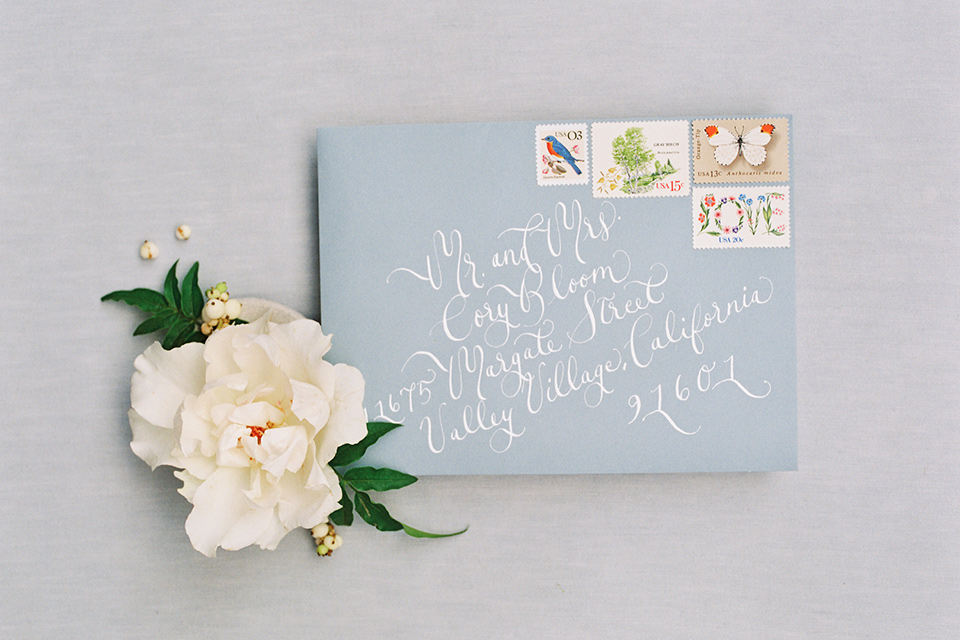 USA 03
GRAY BIRCH
USA 15c
Orange-Tip
USA 13c Anthocaris midea
LOVE
USA 20c
Mr. and Mrs.
Cory Bloom
11675 Margate Street
Valley Village, California
91601